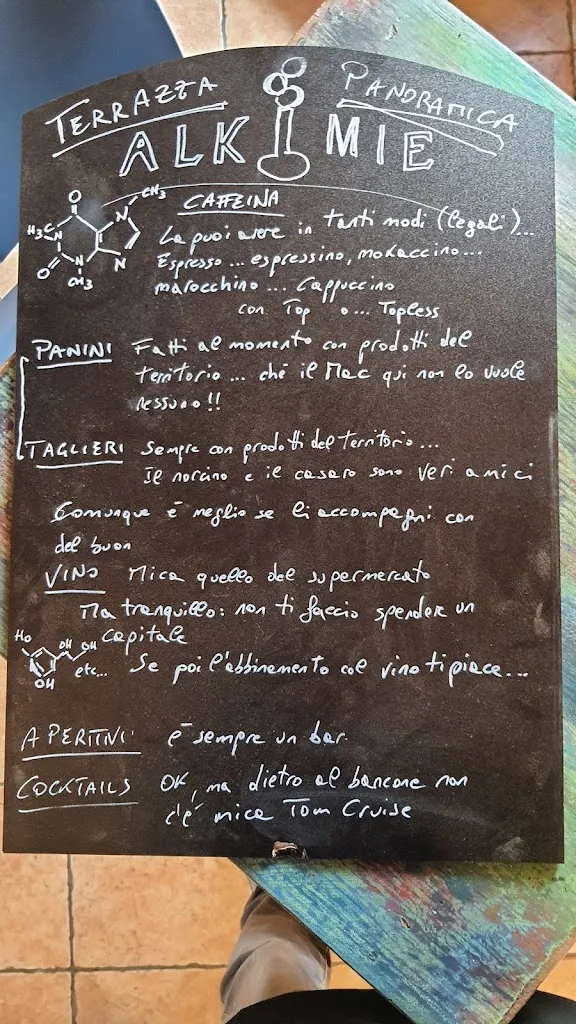 TERRAZZA PANORAMICA
ALK MIE
CAFFEINA
O
CH3
H3C
N
N
O
N
N
CH3
La puoi avere in tanti modi (legali)...
Espresso... espressino, mokaccino...
marocchino... Cappuccino
con Top o... Topless
PANINI Fatti al momento con prodotti del
territorio... ché il Mac qui non lo vuole
nessuno!!
TAGLIERI sempre con prodotti del territorio...
Il norcino e il casaro sono veri amici
Comunque è meglio se li accompagni con
del buon
VINO Mica quello del supermercato
Ma tranquillo: non ti faccio spendere un
capitale
HO
OH
OH
OH
etc... Se poi l'abbinamento col vino ti piace...
APERITIVI è sempre un bar
COCKTAILS OK, ma dietro al bancone non
c'è mica Tom Cruise